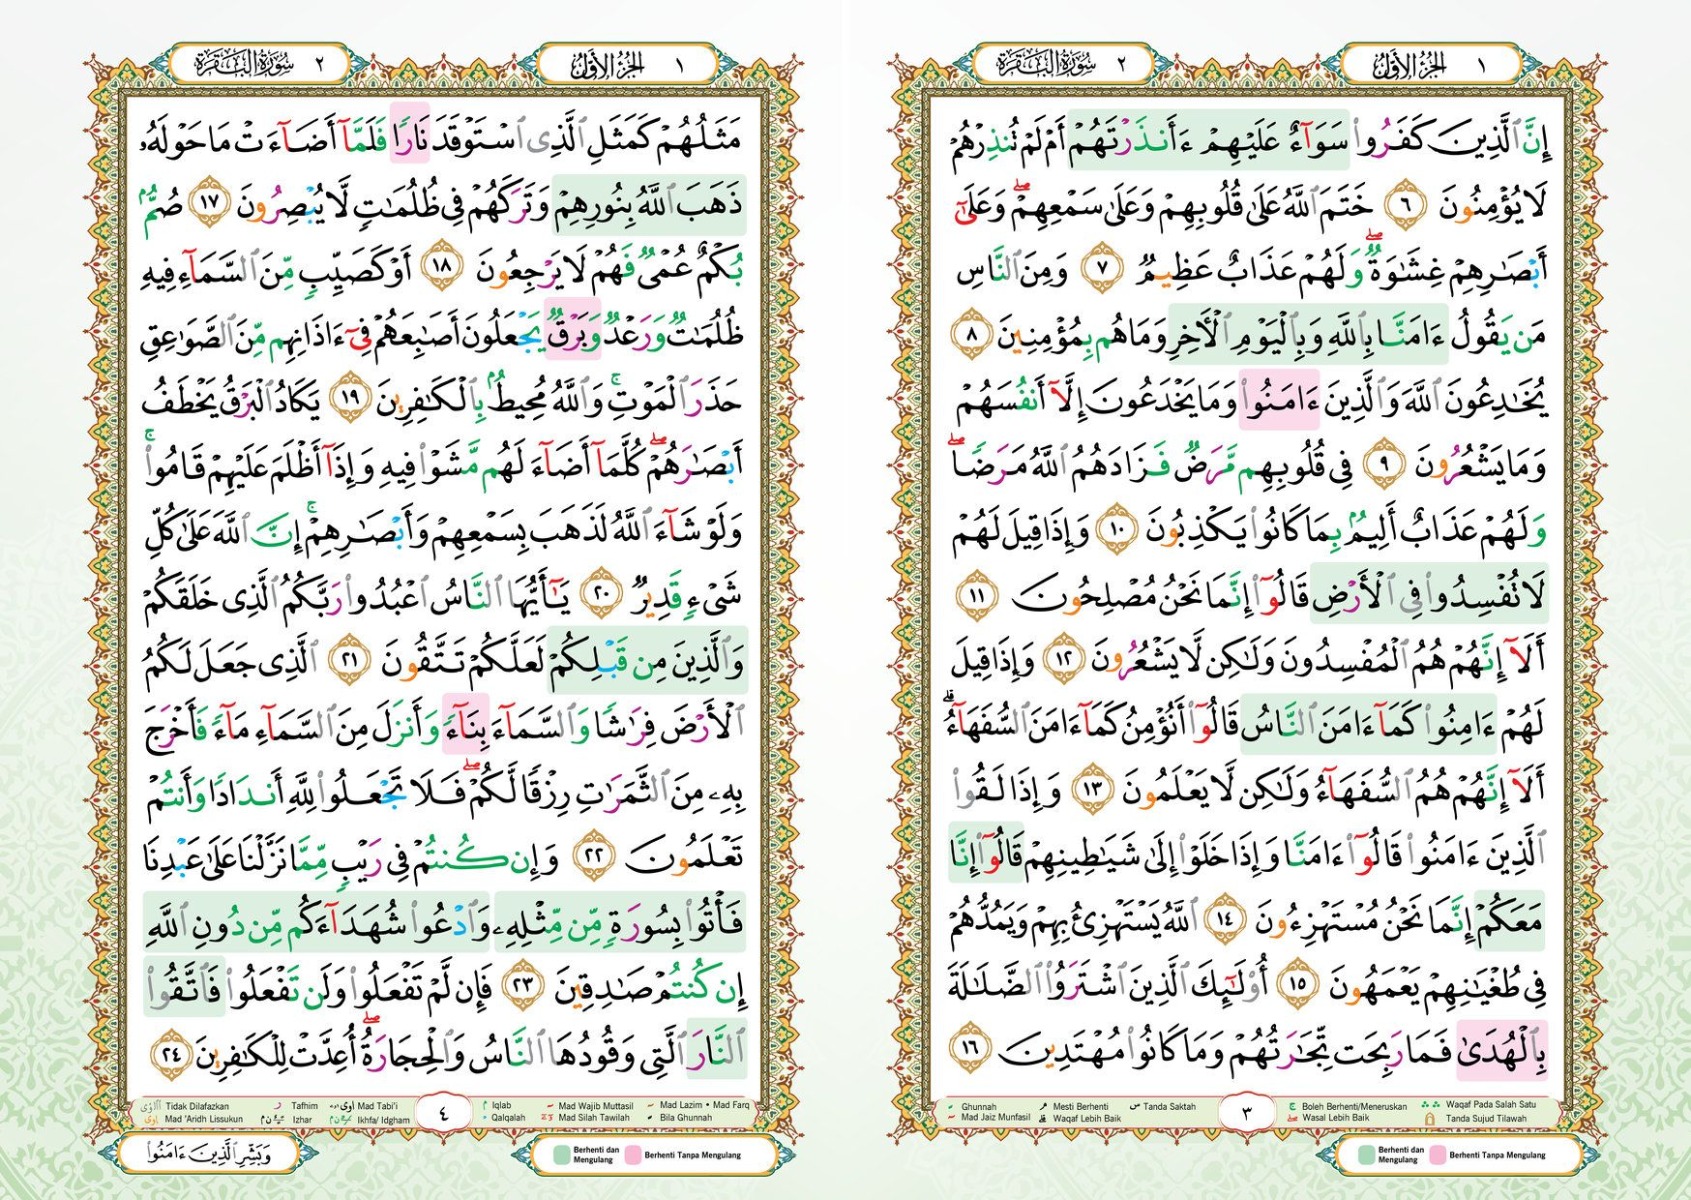 الجزء الأول ١
سورة البقرة ٢
إِنَّ ٱلَّذِينَ كَفَرُوا۟ سَوَآءٌ عَلَيْهِمْ ءَأَنذَرْتَهُمْ أَمْ لَمْ تُنذِرْهُمْ
لَا يُؤْمِنُونَ ٦ خَتَمَ ٱللَّهُ عَلَىٰ قُلُوبِهِمْ وَعَلَىٰ سَمْعِهِمْ ۖ وَعَلَىٰٓ
أَبْصَـٰرِهِمْ غِشَـٰوَةٌ ۖ وَلَهُمْ عَذَابٌ عَظِيمٌ ٧ وَمِنَ ٱلنَّاسِ
مَن يَقُولُ ءَامَنَّا بِٱللَّهِ وَبِٱلْيَوْمِ ٱلْأَخِرِ وَمَا هُم بِمُؤْمِنِينَ ٨
يُخَـٰدِعُونَ ٱللَّهَ وَٱلَّذِينَ ءَامَنُوا۟ وَمَا يَخْدَعُونَ إِلَّآ أَنفُسَهُمْ
وَمَا يَشْعُرُونَ ٩ فِى قُلُوبِهِم مَّرَضٌ فَزَادَهُمُ ٱللَّهُ مَرَضًا ۖ
وَلَهُمْ عَذَابٌ أَلِيمٌۢ بِمَا كَانُوا۟ يَكْذِبُونَ ١٠ وَإِذَا قِيلَ لَهُمْ
لَا تُفْسِدُوا۟ فِى ٱلْأَرْضِ قَالُوٓا۟ إِنَّمَا نَحْنُ مُصْلِحُونَ ١١
أَلَآ إِنَّهُمْ هُمُ ٱلْمُفْسِدُونَ وَلَـٰكِن لَّا يَشْعُرُونَ ١٢ وَإِذَا قِيلَ
لَهُمْ ءَامِنُوا۟ كَمَآ ءَامَنَ ٱلنَّاسُ قَالُوٓا۟ أَنُؤْمِنُ كَمَآ ءَامَنَ ٱلسُّفَهَآءُ ۗ
أَلَآ إِنَّهُمْ هُمُ ٱلسُّفَهَآءُ وَلَـٰكِن لَّا يَعْلَمُونَ ١٣ وَإِذَا لَقُوا۟
ٱلَّذِينَ ءَامَنُوا۟ قَالُوٓا۟ ءَامَنَّا وَإِذَا خَلَوْا۟ إِلَىٰ شَيَـٰطِينِهِمْ قَالُوٓا۟ إِنَّا
مَعَكُمْ إِنَّمَا نَحْنُ مُسْتَهْزِءُونَ ١٤ ٱللَّهُ يَسْتَهْزِئُ بِهِمْ وَيَمُدُّهُمْ
فِى طُغْيَـٰنِهِمْ يَعْمَهُونَ ١٥ أُو۟لَـٰٓئِكَ ٱلَّذِينَ ٱشْتَرَوُا۟ ٱلضَّلَـٰلَةَ
بِٱلْهُدَىٰ فَمَا رَبِحَت تِّجَـٰرَتُهُمْ وَمَا كَانُوا۟ مُهْتَدِينَ ١٦
Ghunnah
Mad Jaiz Munfasil
Mesti Berhenti
Waqaf Lebih Baik
Tanda Saktah
٣
Boleh Berhenti/Meneruskan
Wasal Lebih Baik
Waqaf Pada Salah Satu
Tanda Sujud Tilawah
Berhenti dan Mengulang
Berhenti Tanpa Mengulang
الجزء الأول ١
سورة البقرة ٢
مَثَلُهُمْ كَمَثَلِ ٱلَّذِى ٱسْتَوْقَدَ نَارًا فَلَمَّآ أَضَآءَتْ مَا حَوْلَهُۥ
ذَهَبَ ٱللَّهُ بِنُورِهِمْ وَتَرَكَهُمْ فِى ظُلُمَـٰتٍ لَّا يُبْصِرُونَ ١٧ صُمٌّۢ
بُكْمٌ عُمْىٌ فَهُمْ لَا يَرْجِعُونَ ١٨ أَوْ كَصَيِّبٍ مِّنَ ٱلسَّمَآءِ فِيهِ
ظُلُمَـٰتٌ وَرَعْدٌ وَبَرْقٌ يَجْعَلُونَ أَصَـٰبِعَهُمْ فِىٓ ءَاذَانِهِم مِّنَ ٱلصَّوَٰعِقِ
حَذَرَ ٱلْمَوْتِ ۚ وَٱللَّهُ مُحِيطٌۢ بِٱلْكَـٰفِرِينَ ١٩ يَكَادُ ٱلْبَرْقُ يَخْطَفُ
أَبْصَـٰرَهُمْ ۖ كُلَّمَآ أَضَآءَ لَهُم مَّشَوْا۟ فِيهِ وَإِذَآ أَظْلَمَ عَلَيْهِمْ قَامُوا۟ ۚ
وَلَوْ شَآءَ ٱللَّهُ لَذَهَبَ بِسَمْعِهِمْ وَأَبْصَـٰرِهِمْ ۚ إِنَّ ٱللَّهَ عَلَىٰ كُلِّ
شَىْءٍ قَدِيرٌ ٢٠ يَـٰٓأَيُّهَا ٱلنَّاسُ ٱعْبُدُوا۟ رَبَّكُمُ ٱلَّذِى خَلَقَكُمْ
وَٱلَّذِينَ مِن قَبْلِكُمْ لَعَلَّكُمْ تَتَّقُونَ ٢١ ٱلَّذِى جَعَلَ لَكُمُ
ٱلْأَرْضَ فِرَٰشًا وَٱلسَّمَآءَ بِنَآءً وَأَنزَلَ مِنَ ٱلسَّمَآءِ مَآءً فَأَخْرَجَ
بِهِۦ مِنَ ٱلثَّمَرَٰتِ رِزْقًا لَّكُمْ ۖ فَلَا تَجْعَلُوا۟ لِلَّهِ أَندَادًا وَأَنتُمْ
تَعْلَمُونَ ٢٢ وَإِن كُنتُمْ فِى رَيْبٍ مِّمَّا نَزَّلْنَا عَلَىٰ عَبْدِنَا
فَأْتُوا۟ بِسُورَةٍ مِّن مِّثْلِهِۦ وَٱدْعُوا۟ شُهَدَآءَكُم مِّن دُونِ ٱللَّهِ
إِن كُنتُمْ صَـٰدِقِينَ ٢٣ فَإِن لَّمْ تَفْعَلُوا۟ وَلَن تَفْعَلُوا۟ فَٱتَّقُوا۟
ٱلنَّارَ ٱلَّتِى وَقُودُهَا ٱلنَّاسُ وَٱلْحِجَارَةُ ۖ أُعِدَّتْ لِلْكَـٰفِرِينَ ٢٤
Tidak Dilafazkan
Mad 'Aridh Lissukun
Tafhim
Izhar
Mad Tabi'i
Ikhfa/ Idgham
٤
Iqlab
Qalqalah
Mad Wajib Muttasil
Mad Silah Tawilah
Mad Lazim • Mad Farq
Bila Ghunnah
وَبَشِّرِ ٱلَّذِينَ ءَامَنُوا۟
Berhenti dan Mengulang
Berhenti Tanpa Mengulang